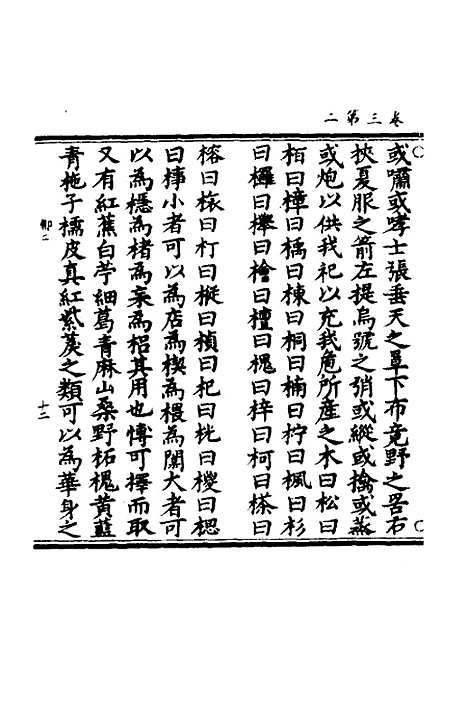 卷三第二
或嘯或哮士張垂天之罩下布竟野之罟右
挾夏服之箭左提烏號之弰或縱或擒或蒸
或炮以供我祀以充我危所產之木曰松曰
栢曰樟曰楀曰棟曰桐曰楠曰柠曰楓曰杉
曰欏曰櫸曰檜曰檀曰槐曰梓曰柯曰㮈曰
榕曰㭉曰朾曰樅曰楨曰杞曰㭇曰椶曰楒
曰槫小者可以為店為楔為椳為闑大者可
以為檼為楮為宋為梠其用也博可擇而取
又有紅蕉白苧細葛青麻山桑野柘槐黃藍
青梔子檽皮真紅紫茰之類可以為華身之
十二